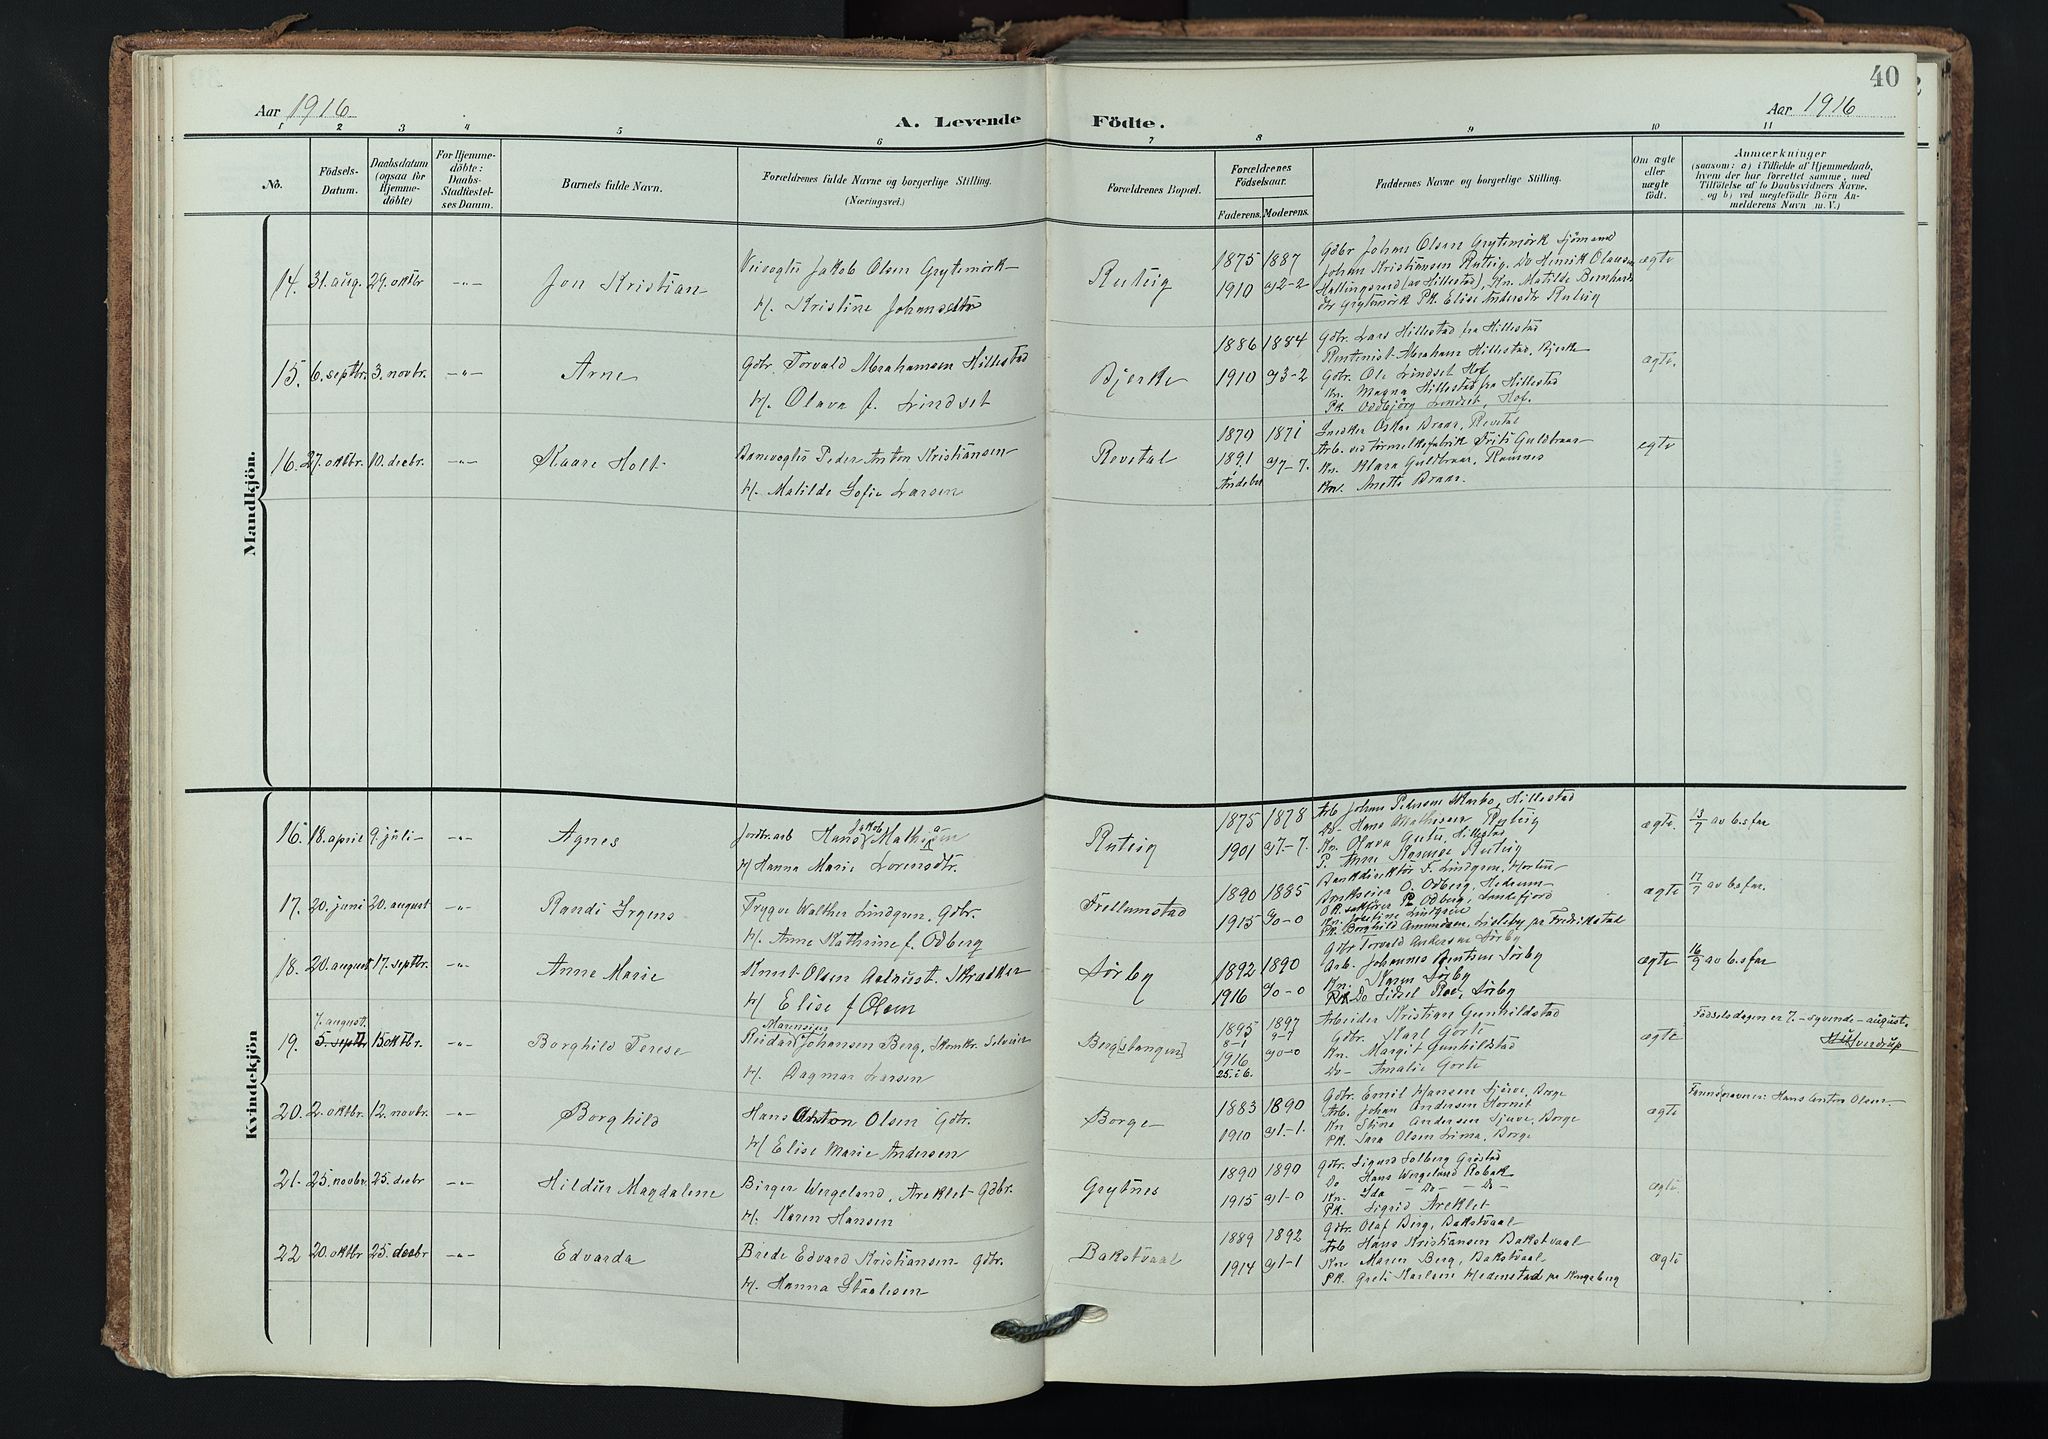 40
Aar 1916
A. Levende Födte.
Aar 1916
1 2 3 4 5 6 7 8 9 10 11
No.
Födsels-Datum.
Daabsdatum (ogsaa for Hjemme-döbte)
For Hjemme-döbte: Daabs-Stadfæstel-ses Datum.
Barnets fulde Navn.
Forældrenes fulde Navne og borgerlige Stilling. (Næringsvei.)
Forældrenes Bopæl.
Forældrenes Födselsaar.
Faderens. Moderens.
Faddernes Navne og borgerlige Stilling.
Om ægte eller uægte födt.
Anmærkninger
(saasom: a) i Tilfælde af Hjemmedaab,
hvem der har forrettet samme, med
Tilföielse af to Daabsvidners Navne.
og b) ved uægtefödte Börn An-
melderens Navn m. V.)
Mandkjön.
14. 31. aug. 29. oktbr -"- Jon Kristian
Veivogter Jakob Olsen Grytimörk
H. Kristine Johansdtr
Ruteig
1875 1887
1910 92-2
Gdbr Johan Olsen Grytimörk Sjömand
Johan Kristiansen Ruteig. Do Henrik Olausen
Hallingsrud (av Hillestad), Kn. Matilde Bernhards
dtr Grytimörk Pk. Elise Andersdtr Ruteig
ægte
15. 6. septbr. 3. novbr. -"- Arne
Gdbr. Torvald Abrahamsen Hillestad
H. Olava f. Lindset
Bjerke
1886 1884
1910 93-2
Gdbr. Lars Hillestad fra Hillestad
Rentenist Abraham Hillestad, Bjerke
Gdbr. Ole Lindset Hof,
Kn. Magna Hillestad fra Hillestad
Pk. Oddbjörg Lindset, Hof.
ægte.
16. 27. oktbr. 10. decbr. -"- Kaare Holt
Banevogter Peder Anton Kristiansen
H. Matilde Sofie Larsen
Revetal
1870 1871
1891 97-7.
Andebu
Snedker Oskar Braar, Revetal
Arb. ved törmelksfabrik Frits Guldbraar
Kn. Klara Guldbraar, Ramnes
Kn. Anette Braar.
ægte
Kvindekjön
16. 18. april 9. juli -"- Agnes
Jordbr.arb Hans Jakob Mathiasen
H Hanna Marie Lorensdtr.
Ruteig
1875 1878
1901 97-7.
Arb Johan Pedersen Skarbo, Hillestad
Do Hans Mathisen Ruteig
Kn. Olava Hillestad
P. Anne Ruteig
ægte. 13/7 av b.s. far
17. 20. juni 20. august -"- Randi Irgens
Trygve Walther Lindgren. Gdbr.
H. Anne Kathrine f. Odberg
Frellumstad
1890 1885
1915 90-0
Bankdirektör F. Lindgren, Horten
Brukseier O. Odberg, Hedrum
O.R. sakförer Odberg, Sandefjord
Kn. Josefine Lindgren
Pk. Borghild Amundsen, Lisleby pr Fredrikstad
ægte 17/7 av b.s. far.
18. 20. august 17. septbr. -"- Anne Marie
Knut Olsen Skrædder
H Elise f Olsen
Sörby
1892 1890
1916 90-0
Gdbr Torvald Andersen Sörby
Arb. Johannes Sörby
Kn. Karen Sörby
Pk. Do Sidsel Roe, Sörby
ægte 16/9 av b.s. far
19. 7. august. 5. septbr 15 oktbr. -"- Borghild Terese
Reidar Marensius Johansen Berg, Skomkr. Selveier
H. Dagmar Larsen
Berg [stangen]
1895 1897
8-1 9-7
1916 90-0
25.16.
Arbeider Kristian Gunhildstad
Gdbr. Karl Gorte
Kn. Margit Gunhildstad
Do Amalie Gorte
ægte
Födselsdagen er 7. - syvende - august.
Sverdrup
20. 2. oktbr. 12. novbr. -"- Borghild
Hans Anton Olsen Gdbr.
H Elise Marie Andersen
Borge
1883 1890
1910 91-1.
Gdbr. Emil Hansen Sjuve, Borge
Arb. Johan Andersen Hornet
Kn Stina Andersen Sjuve, Borge
Pk. Sara Olsen Lima, Borge
ægte
Hans Anton Olsen
21. 25. novbr. 25. decbr -"- Hildur Magdalene
Birger Wergeland, Areklet Gdbr.
H. Karen Hansen
Grytnes
1890 1890
1915 91-0
Gdbr. Sigurd Solberg Gröstad
Do Hans Wergeland Robak
Kn. Ida - Do - - Do -
Pk. Sigrid Areklet
ægte
22 20. oktbr 25. decbr -"- Edvarda
Brede Edvard Kristiansen Gdbr.
H. Hanna Staalesen
Bakstvaal
1889 1892
1914 91-1
Gdbr. Olaf Berg, Bakstvaal
Arb Hans Kristiansen Bakstvaal
Kn Maren Berg, Bakstvaal
Pk. Greti Karlsen Hedenstad pr Kongsberg
ægte